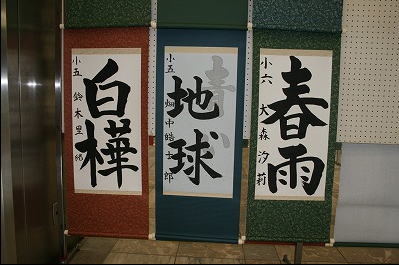 春雨
小六 大森汐莉
青い
地球
小五 畑中皓士郎
白樺
小五 鈴木里